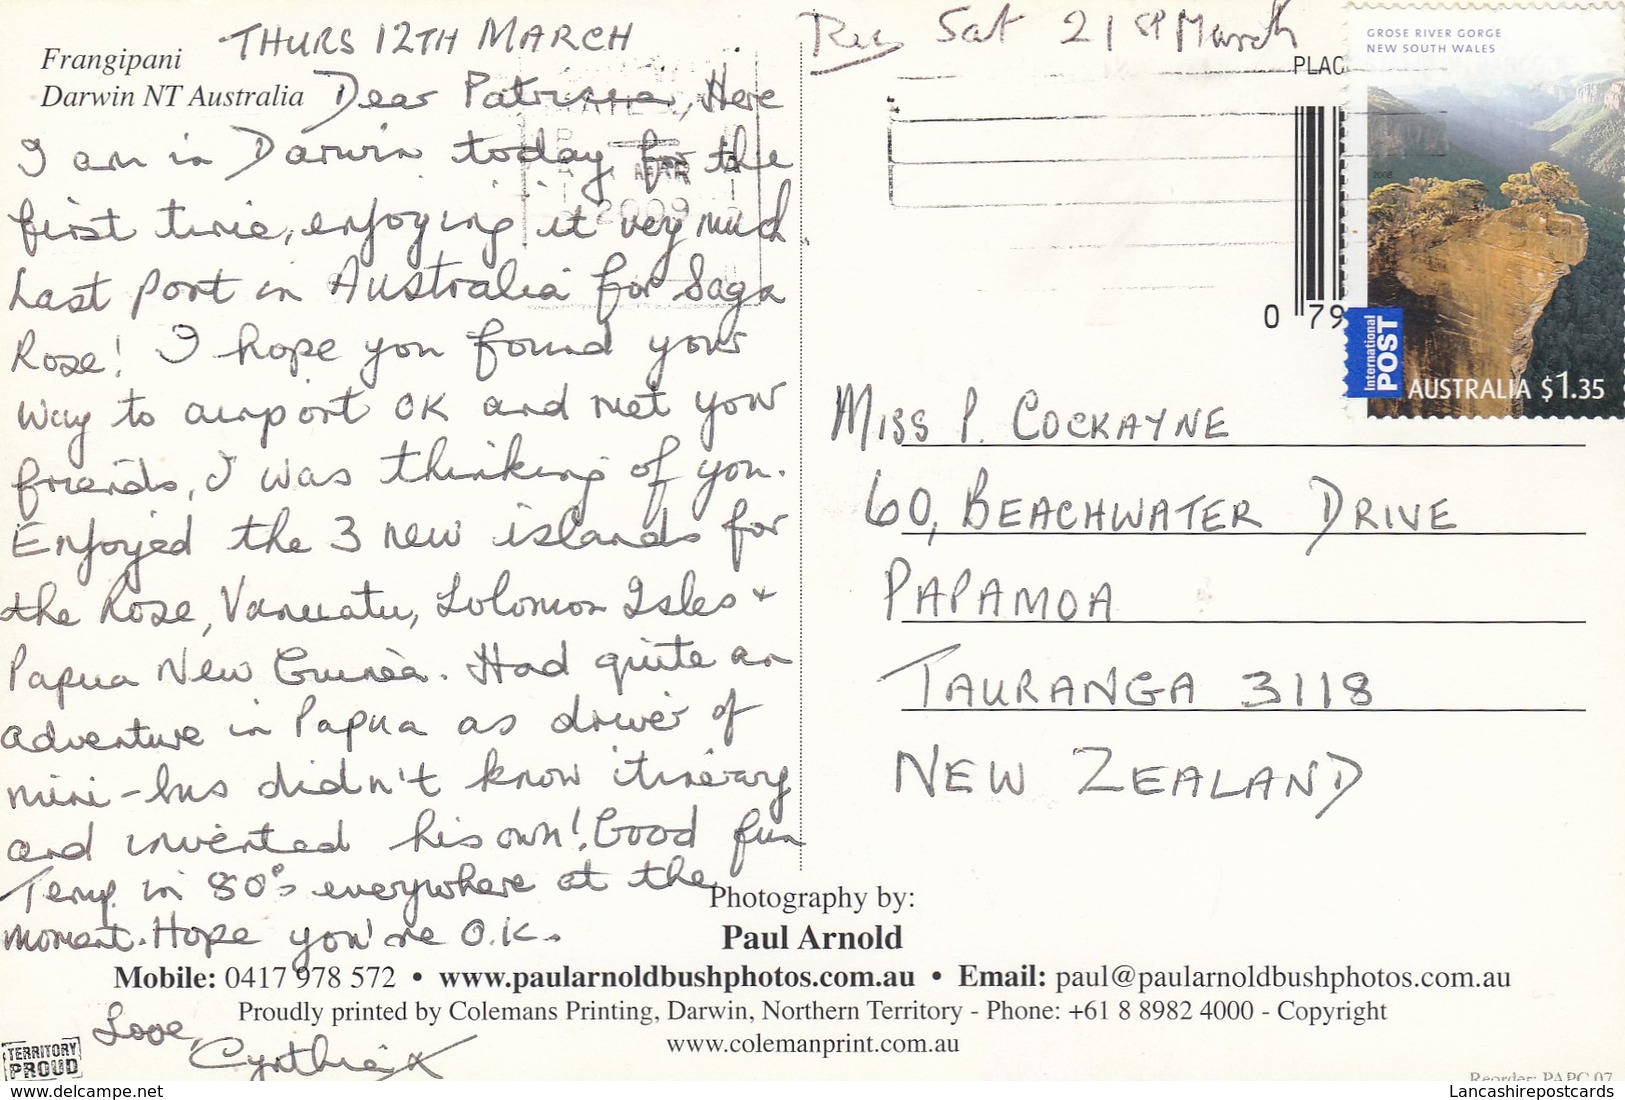 Frangipani
Darwin NT Australia
THURS 12TH MARCH
Dear Patricia, Here
I am in Darwin today for the
first time, enjoying it very much
Last port in Australia for Saga
Rose! I hope you found your
way to airport OK and met your
friends, I was thinking of you.
Enjoyed the 3 new islands for
the Rose, Vanuatu, Solomon Isles +
Papua New Guinea. Had quite an
adventure in Papua as driver of
mini-bus didn't know itinerary
and invented his own! Good fun
Temp. in 80°s everywhere at the
moment. Hope you're O.K.
Love,
Cynthia X
TERRITORY
PROUD
Rec Sat 21st March
PLAC
0 79
GROSE RIVER GORGE
NEW SOUTH WALES
2008
International
POST
AUSTRALIA $1.35
MAR
2009
MISS P. COCKAYNE
60, BEACHWATER DRIVE
PAPAMOA
TAURANGA 3118
NEW ZEALAND
Photography by:
Paul Arnold
Mobile: 0417 978 572 • www.paularnoldbushphotos.com.au • Email: paul@paularnoldbushphotos.com.au
Proudly printed by Colemans Printing, Darwin, Northern Territory - Phone: +61 8 8982 4000 - Copyright
www.colemanprint.com.au
Reorder: PAPC 07
http://www.delcampe.net
Lancashirepostcards